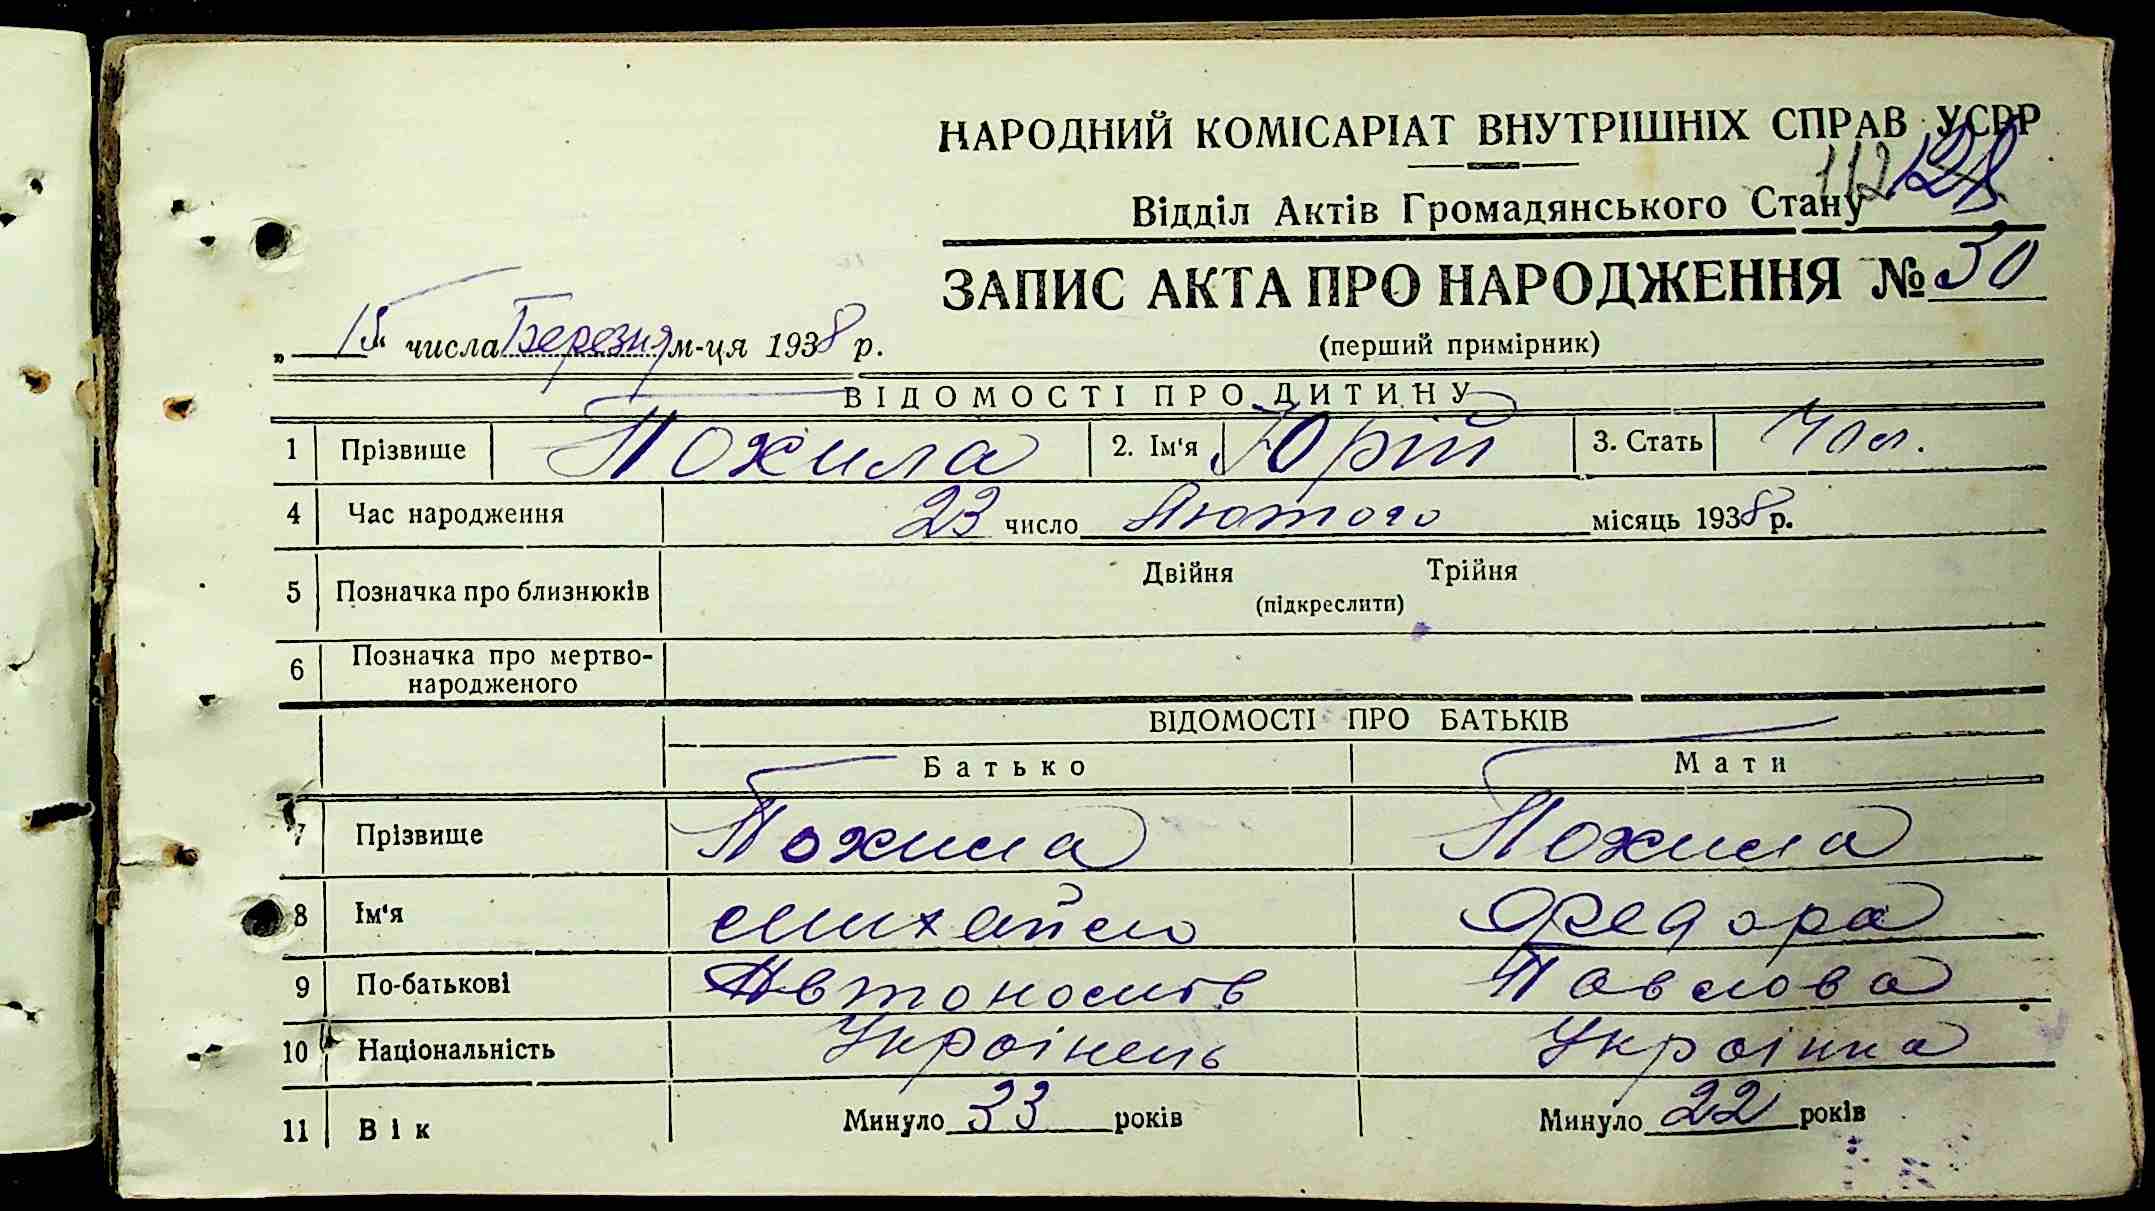 НАРОДНИЙ КОМІСАРІАТ ВНУТРІШНІХ СПРАВ УСРР
112 128
Відділ Актів Громадянського Стану
ЗАПИС АКТА ПРО НАРОДЖЕННЯ № 30
„ 15 “ числа Березня м-ця 1938 р.
(перший примірник)
ВІДОМОСТІ ПРО ДИТИНУ
1 Прізвище Похила 2. Ім'я Юрій 3. Стать Чол.
4 Час народження 23 число Лютого місяць 1938 р.
5 Позначка про близнюків Двійня Трійня
(підкреслити)
6 Позначка про мертво-
народженого
ВІДОМОСТІ ПРО БАТЬКІВ
Батько Мати
7 Прізвище Похила Похила
8 Ім'я Михайло Федора
9 По-батькові Павлова
10 Національність Українець Українка
11 Вік Минуло 33 років Минуло 22 років